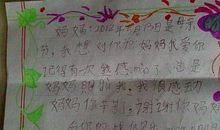 妈妈:2012年5月13日是母亲
节,我想对你说妈妈我爱你
记得有一次我感冒了,是
妈妈照顾我,我很感动
妈妈你辛苦了,谢谢你妈妈